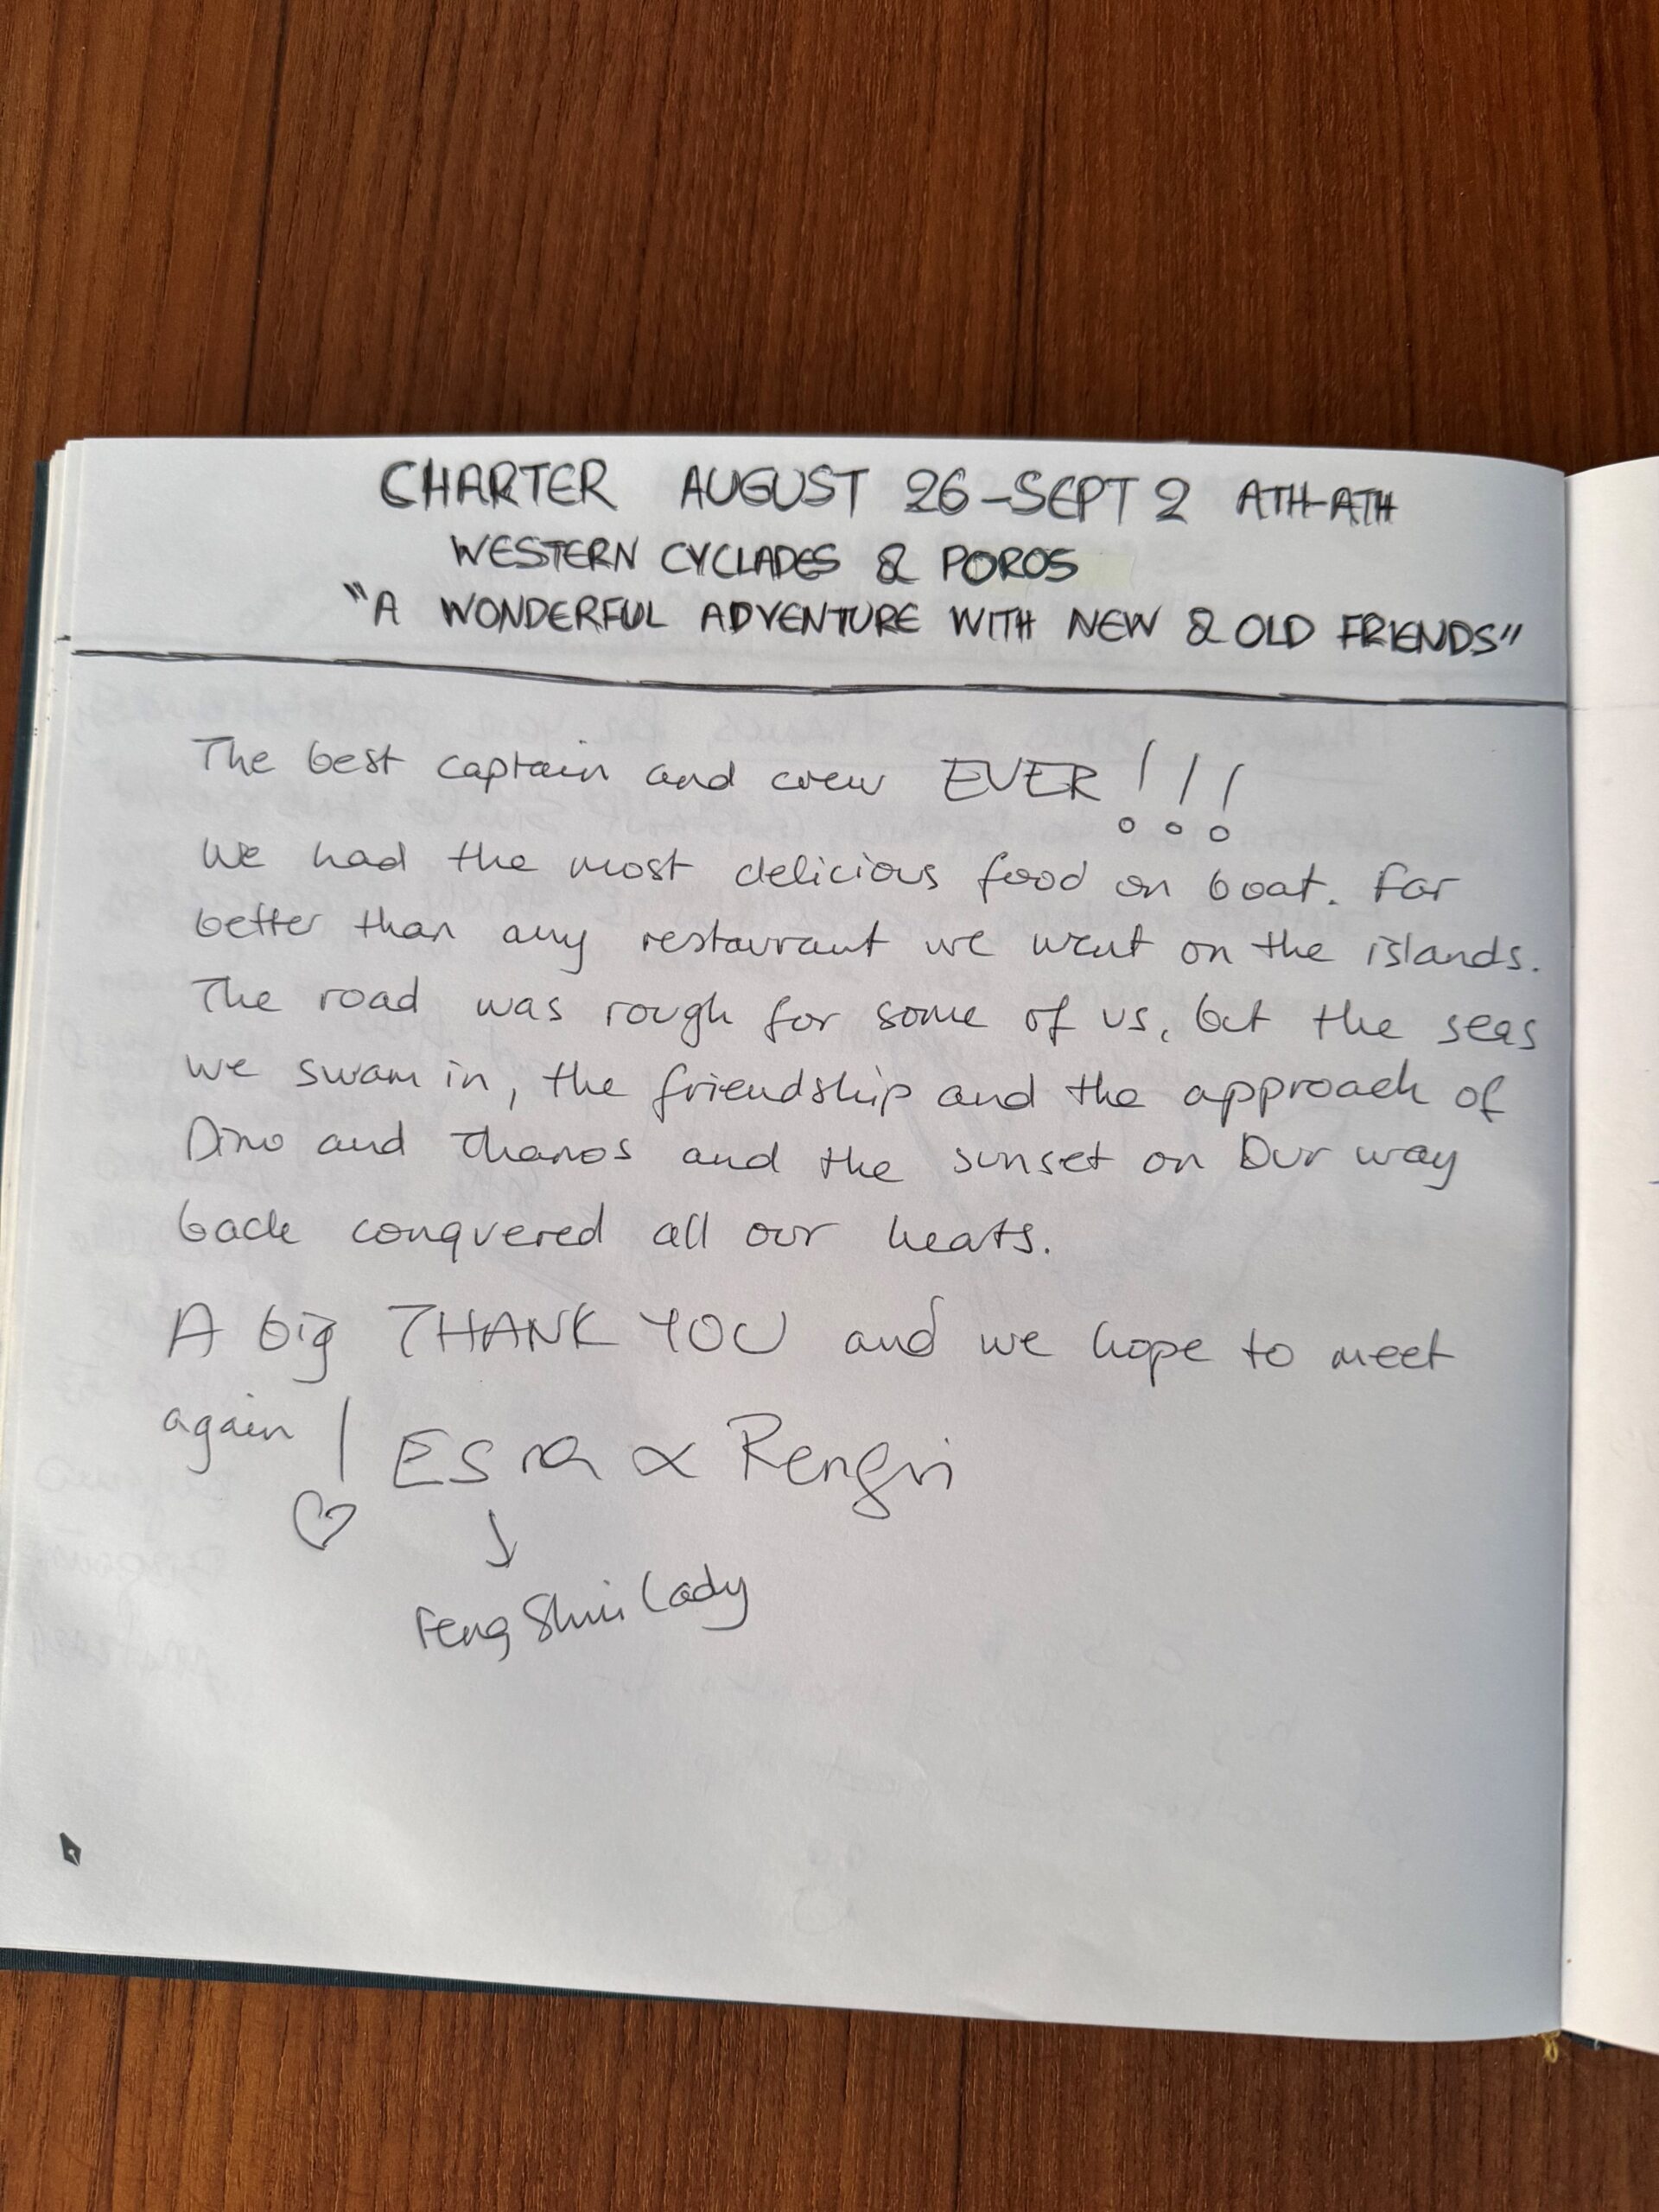 CHARTER AUGUST 26-SEPT 2 ATH-ATH
WESTERN CYCLADES & POROS
"A WONDERFUL ADVENTURE WITH NEW & OLD FRIENDS"
The best captain and crew EVER!!!
We had the most delicious food on boat. Far
better than any restaurant we went on the islands.
The road was rough for some of us, but the seas
we swam in, the friendship and the approach of
Dino and Thanos and the sunset on Our way
back conquered all our heats.
A big THANK YOU and we hope to meet
again! Esra & Rengin
Feng Shui Lady